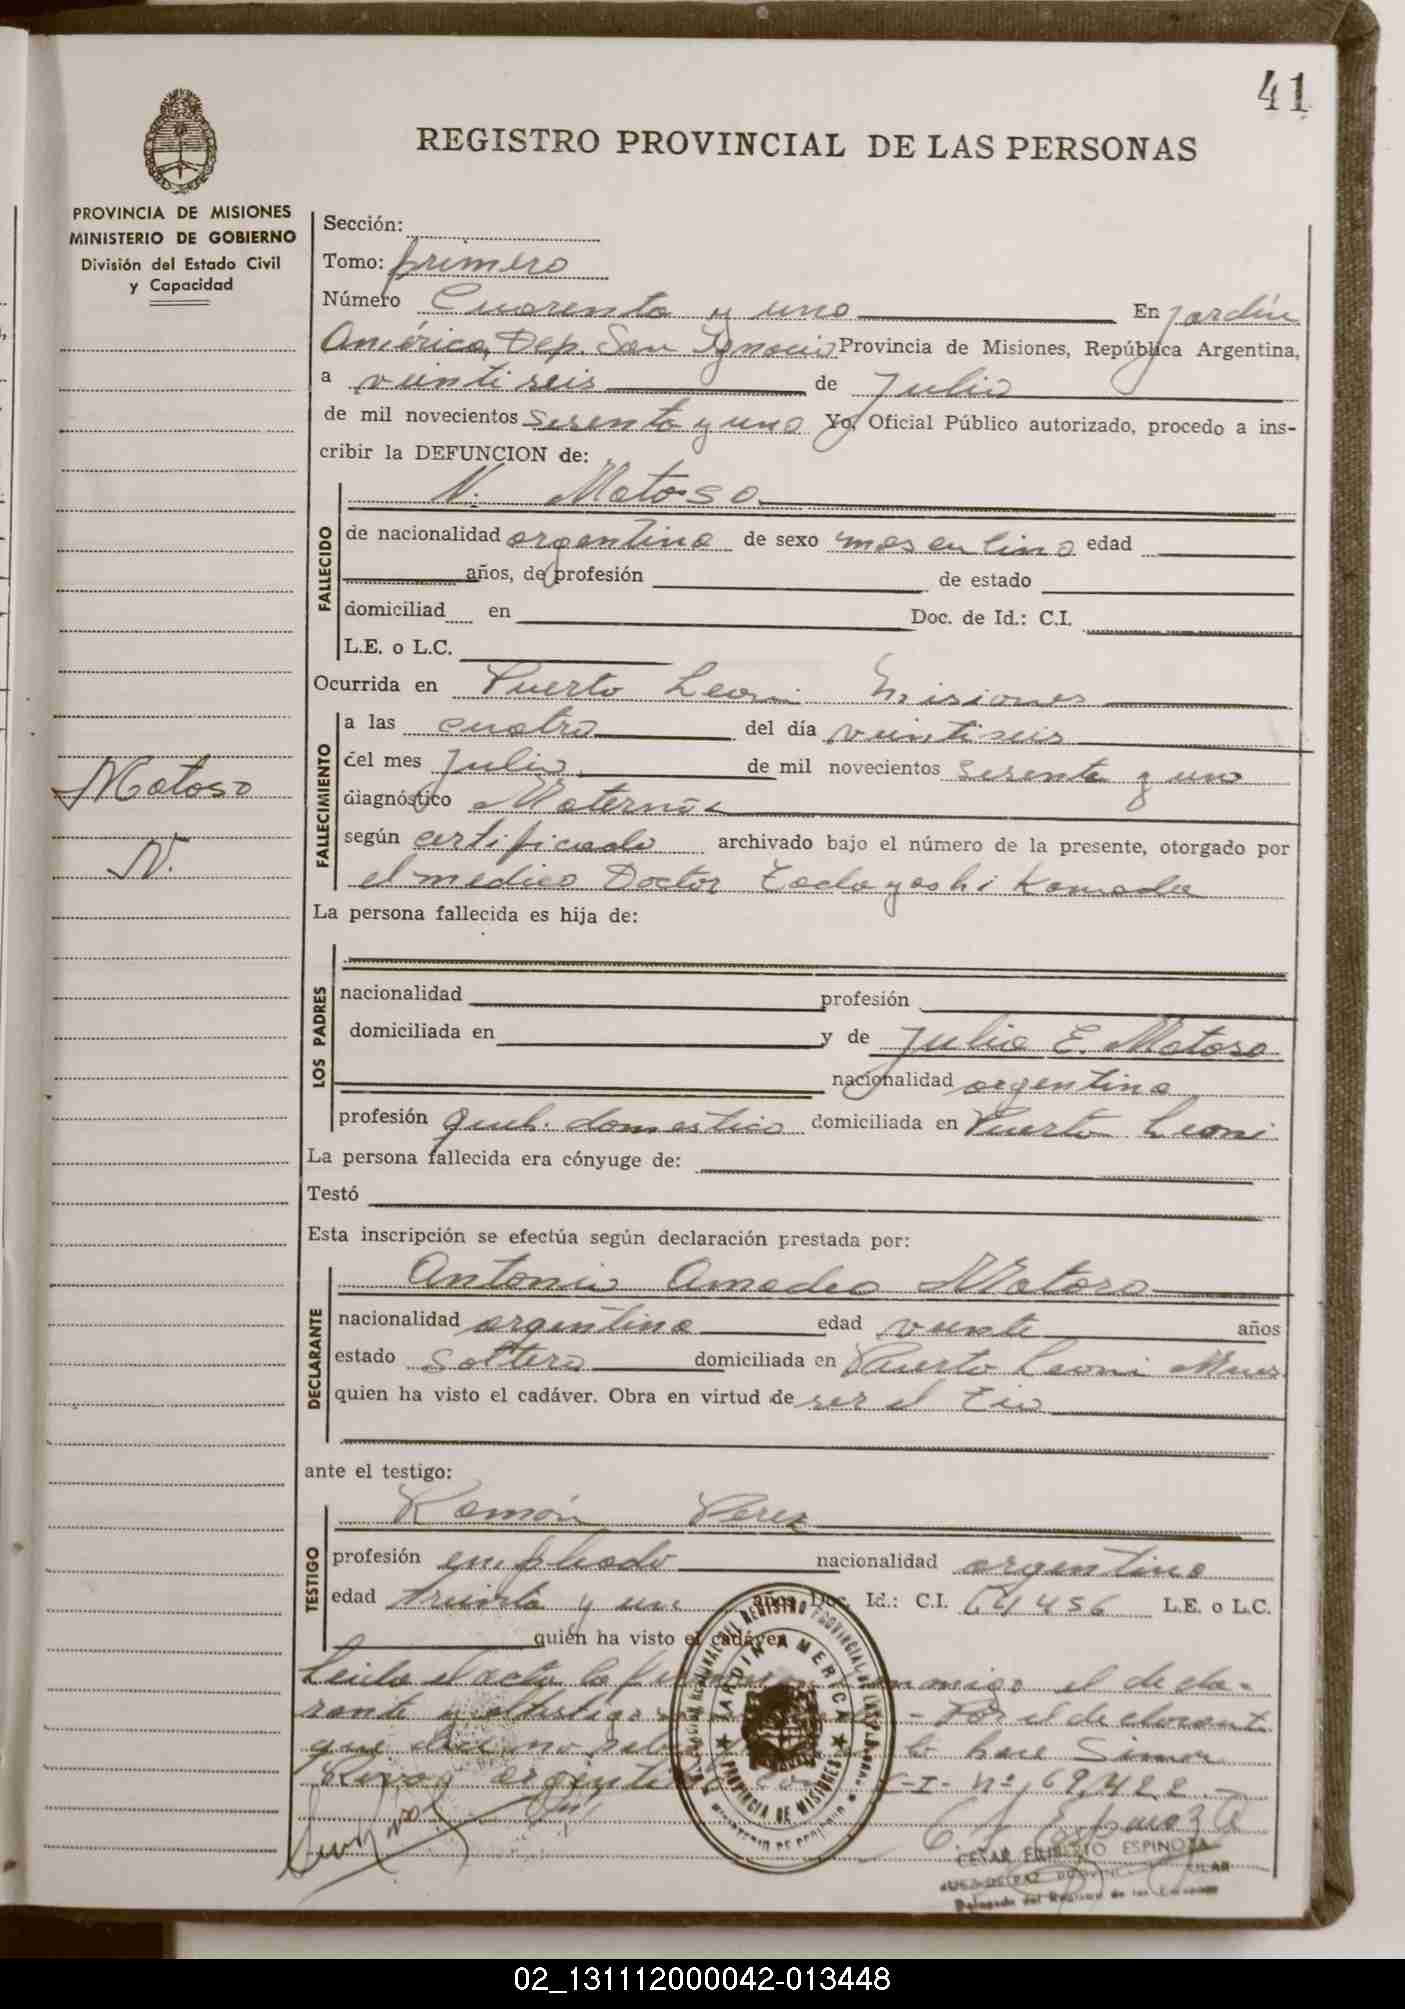 41
REGISTRO PROVINCIAL DE LAS PERSONAS
PROVINCIA DE MISIONES
MINISTERIO DE GOBIERNO
División del Estado Civil
y Capacidad
Sección:
Tomo: primero
Número Cuarenta y uno En Jardín
América, Dep. San Ignacio Provincia de Misiones, República Argentina,
a veintiseis de Julio
de mil novecientos sesenta y uno Yo, Oficial Público autorizado, procedo a ins-
cribir la DEFUNCION de:
N. Matoso
FALLECIDO
de nacionalidad argentina de sexo masculino edad
años, de profesión de estado
domiciliad en Doc. de Id.: C.I.
L.E. o L.C.
Ocurrida en Puerto Leoni Misiones
FALLECIMIENTO
a las cuatro del día veintiseis
del mes Julio de mil novecientos sesenta y uno
Matoso
N.
diagnóstico
según certificado archivado bajo el número de la presente, otorgado por
el medico Doctor Tadayoshi Kamada
La persona fallecida es hija de:
LOS PADRES
nacionalidad profesión
domiciliada en y de Julia E. Matoso
nacionalidad argentina
profesión queh. domestico domiciliada en Puerto Leoni
La persona fallecida era cónyuge de:
Testó
Esta inscripción se efectúa según declaración prestada por:
Antonio Amadeo Matoso
DECLARANTE
nacionalidad argentina edad veinte años
estado soltero domiciliada en Puerto Leoni Mnes
quien ha visto el cadáver. Obra en virtud de ser el Tio
ante el testigo:
Ramón Perez
TESTIGO
profesión empleado nacionalidad argentino
edad treinta y uno años Doc. Id.: C.I. L.E. o L.C.
quien ha visto el cadáver
Leida el acta la conmigo el decla-
rante y el testigo - Por el declarante
que lo hace Simon
argentino con C-I- Nº 69,422
JARDIN AMERICA
PROVINCIA DE MISIONES
CESAR ESPINOZA
02_131112000042-013448